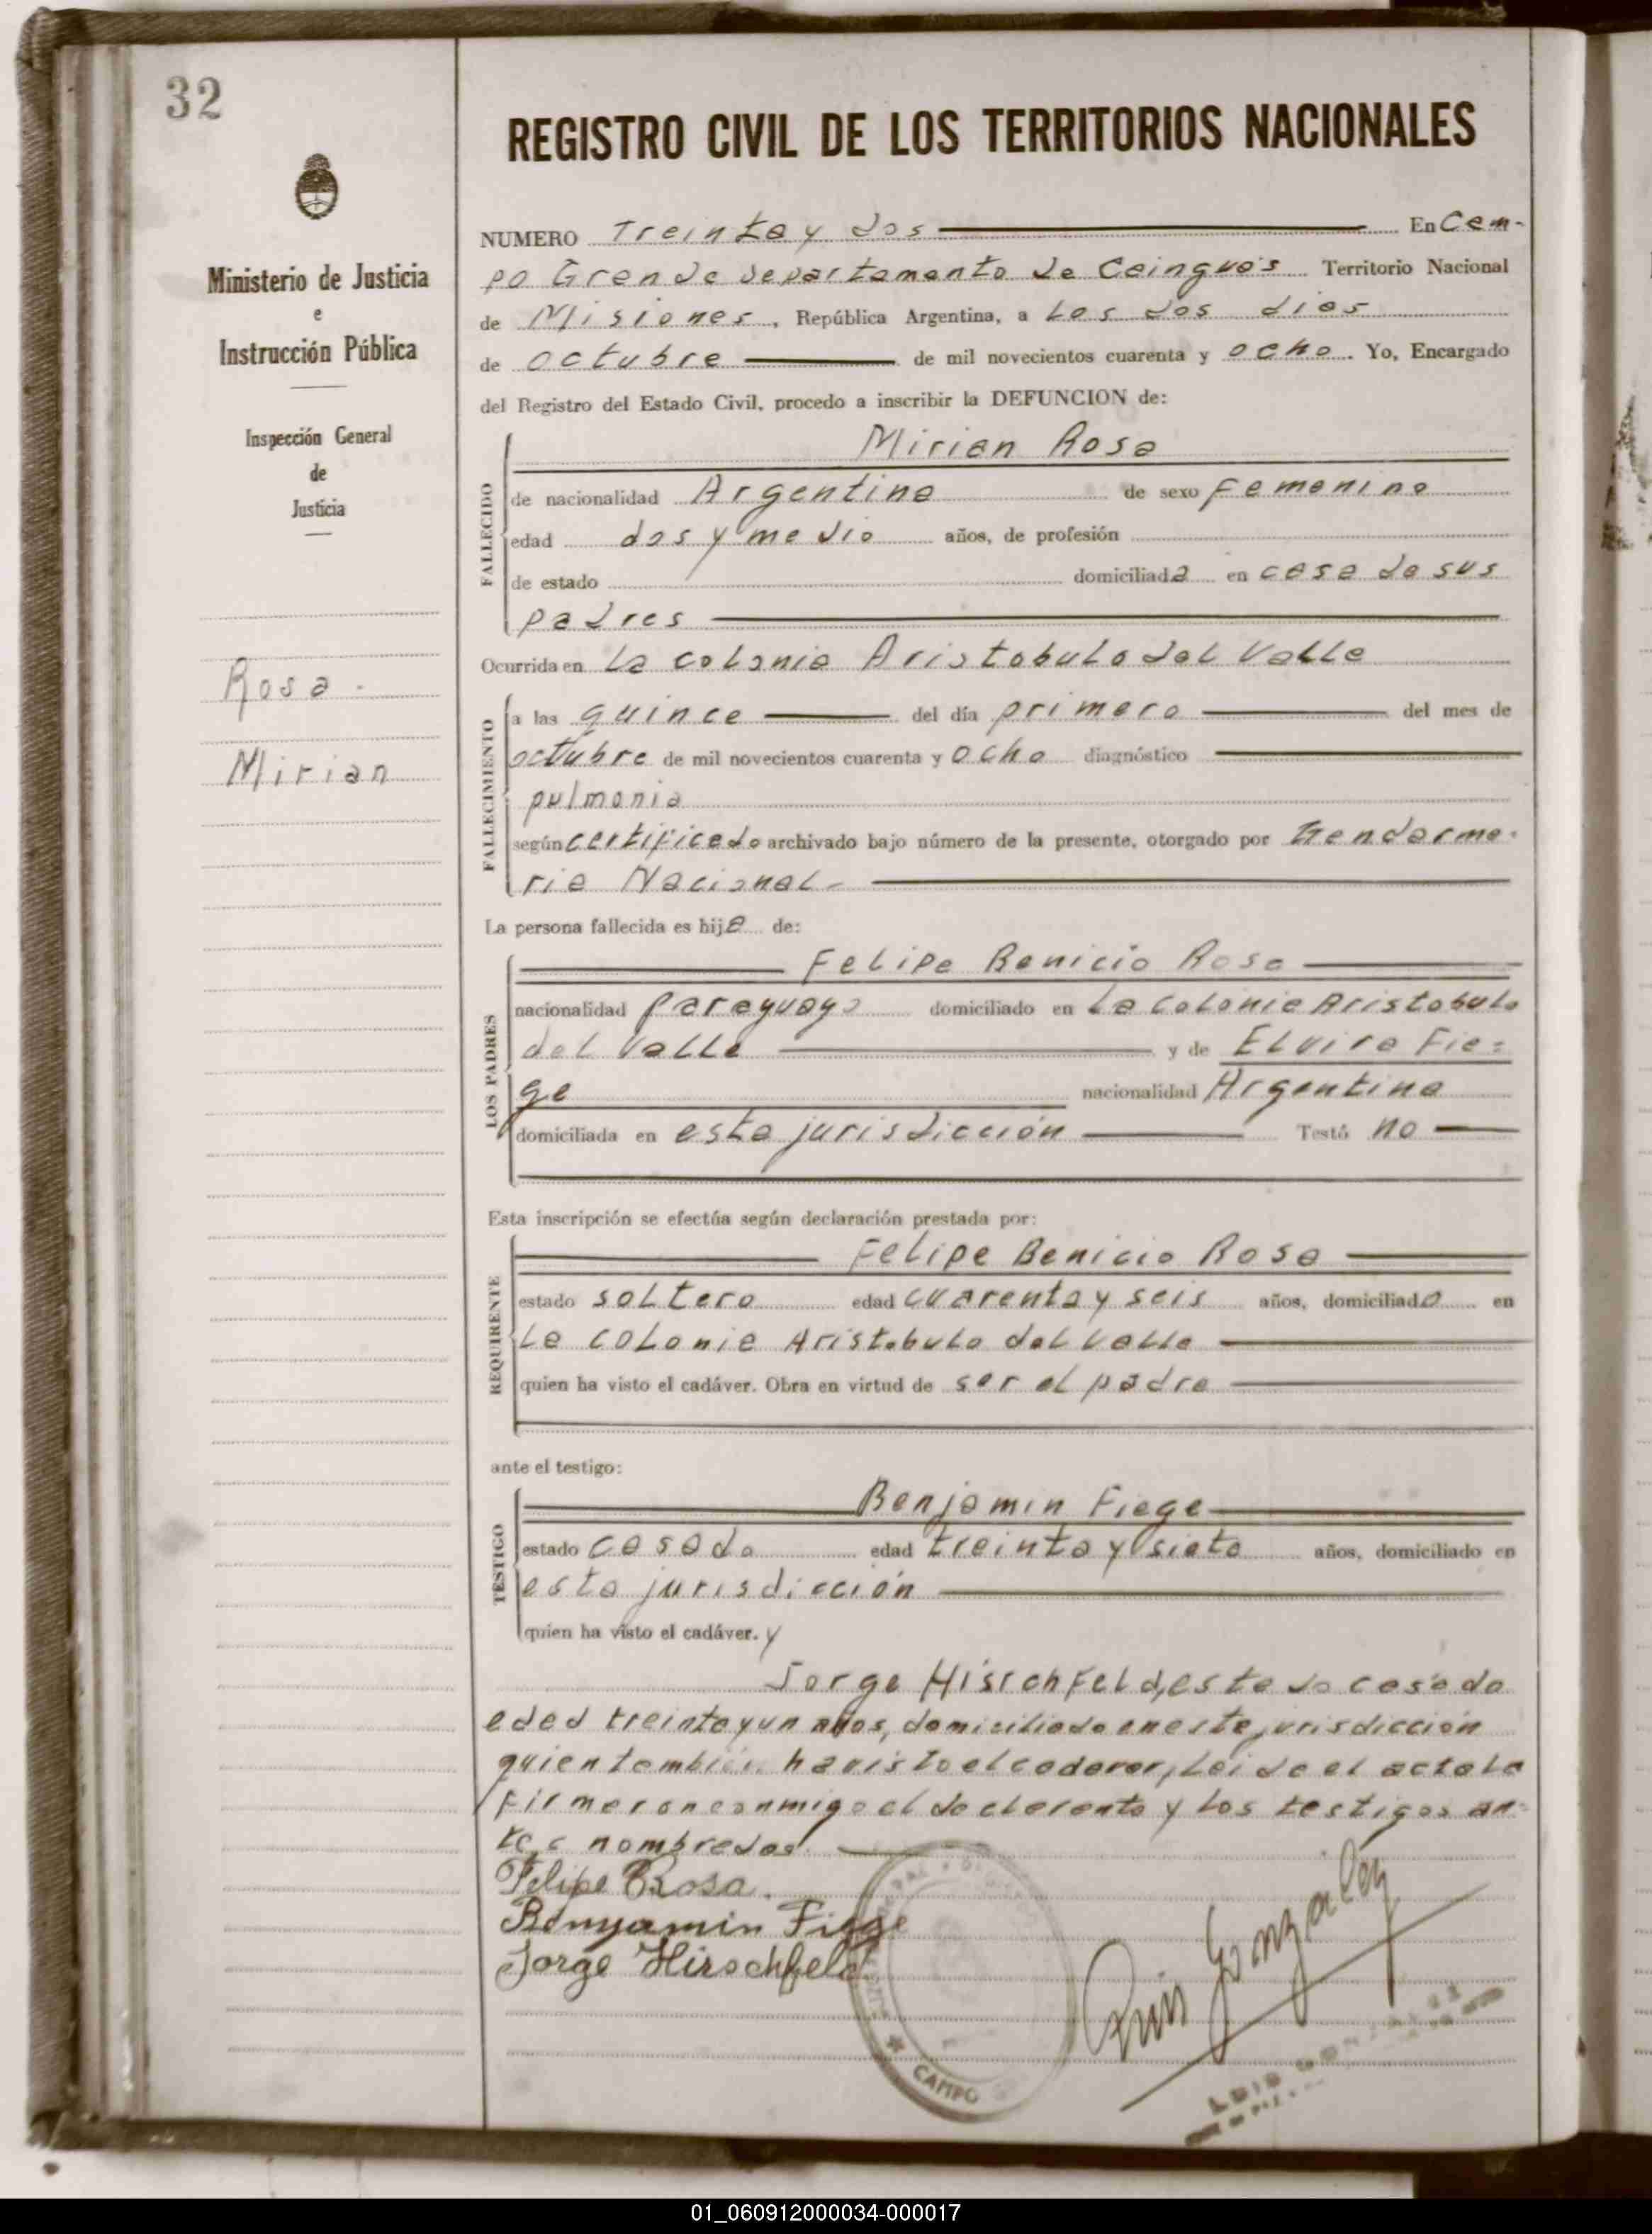 32
Ministerio de Justicia
e
Instrucción Pública
Inspección General
de
Justicia
Rosa.
Mirian
REGISTRO CIVIL DE LOS TERRITORIOS NACIONALES
NUMERO Treinta y dos En Cam-
po Grande departamento de Cainguás Territorio Nacional
de Misiones, República Argentina, a los dos dias
de octubre de mil novecientos cuarenta y ocho. Yo, Encargado
del Registro del Estado Civil, procedo a inscribir la DEFUNCION de:
FALLECIDO
Mirian Rosa
de nacionalidad Argentina de sexo Femenino
edad dos y medio años, de profesión
de estado domiciliada en casa de sus
padres
Ocurrida en la colonia Aristobulo del Valle
FALLECIMIENTO
a las quince del día primero del mes de
octubre de mil novecientos cuarenta y ocho diagnóstico
pulmonia
según certificado archivado bajo número de la presente, otorgado por Gendarme-
ria Nacional.-
La persona fallecida es hija de:
LOS PADRES
Felipe Benicio Rosa
nacionalidad Paraguayo domiciliado en la colonia Aristobulo
del Valle y de Elvira Fie=
ge nacionalidad Argentina
domiciliada en esta jurisdicción Testó no
Esta inscripción se efectúa según declaración prestada por:
REQUIRENTE
Felipe Benicio Rosa
estado soltero edad cuarenta y seis años, domiciliado en
la colonia Aristobulo del Valle
quien ha visto el cadáver. Obra en virtud de ser el padre
ante el testigo:
TESTIGO
Benjamin Fiege
estado casado edad treinta y siete años, domiciliado en
esta jurisdicción
quien ha visto el cadáver. y
Jorge Hisrchfeld, estado casado
edad treinta y un años, domiciliado en esta jurisdicción
quien también ha visto el cadaver, Leida el acta la
firmaron conmigo el declarante y los testigos an=
tes nombrados.
Felipe Rosa.
Benyamin Fiege
Jorge Hirschfeld
Luis Gonzalez
CAMPO
LUIS GONZALEZ
01_060912000034-000017